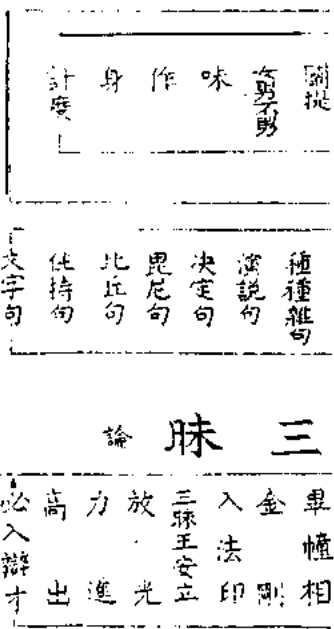 闡提
女男不男
味
作
身
計度
種種雜句
演説句
决定句
毘尼句
比丘句
住持句
文字句
三昧
論
畢幢相
金剛
入法印
三昧王安立
放光
力進
高出
必入辯才